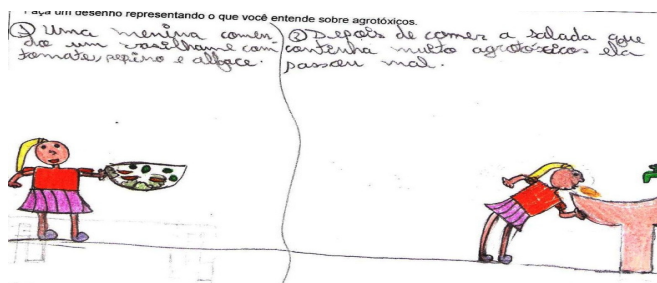 Faça um desenho representando o que você entende sobre agrotóxicos.
① Uma menina comen
do um vasilhame com
tomate, pepino e alface.
② Depois de comer a salada que
continha muito agrotóxicos ela
passou mal.